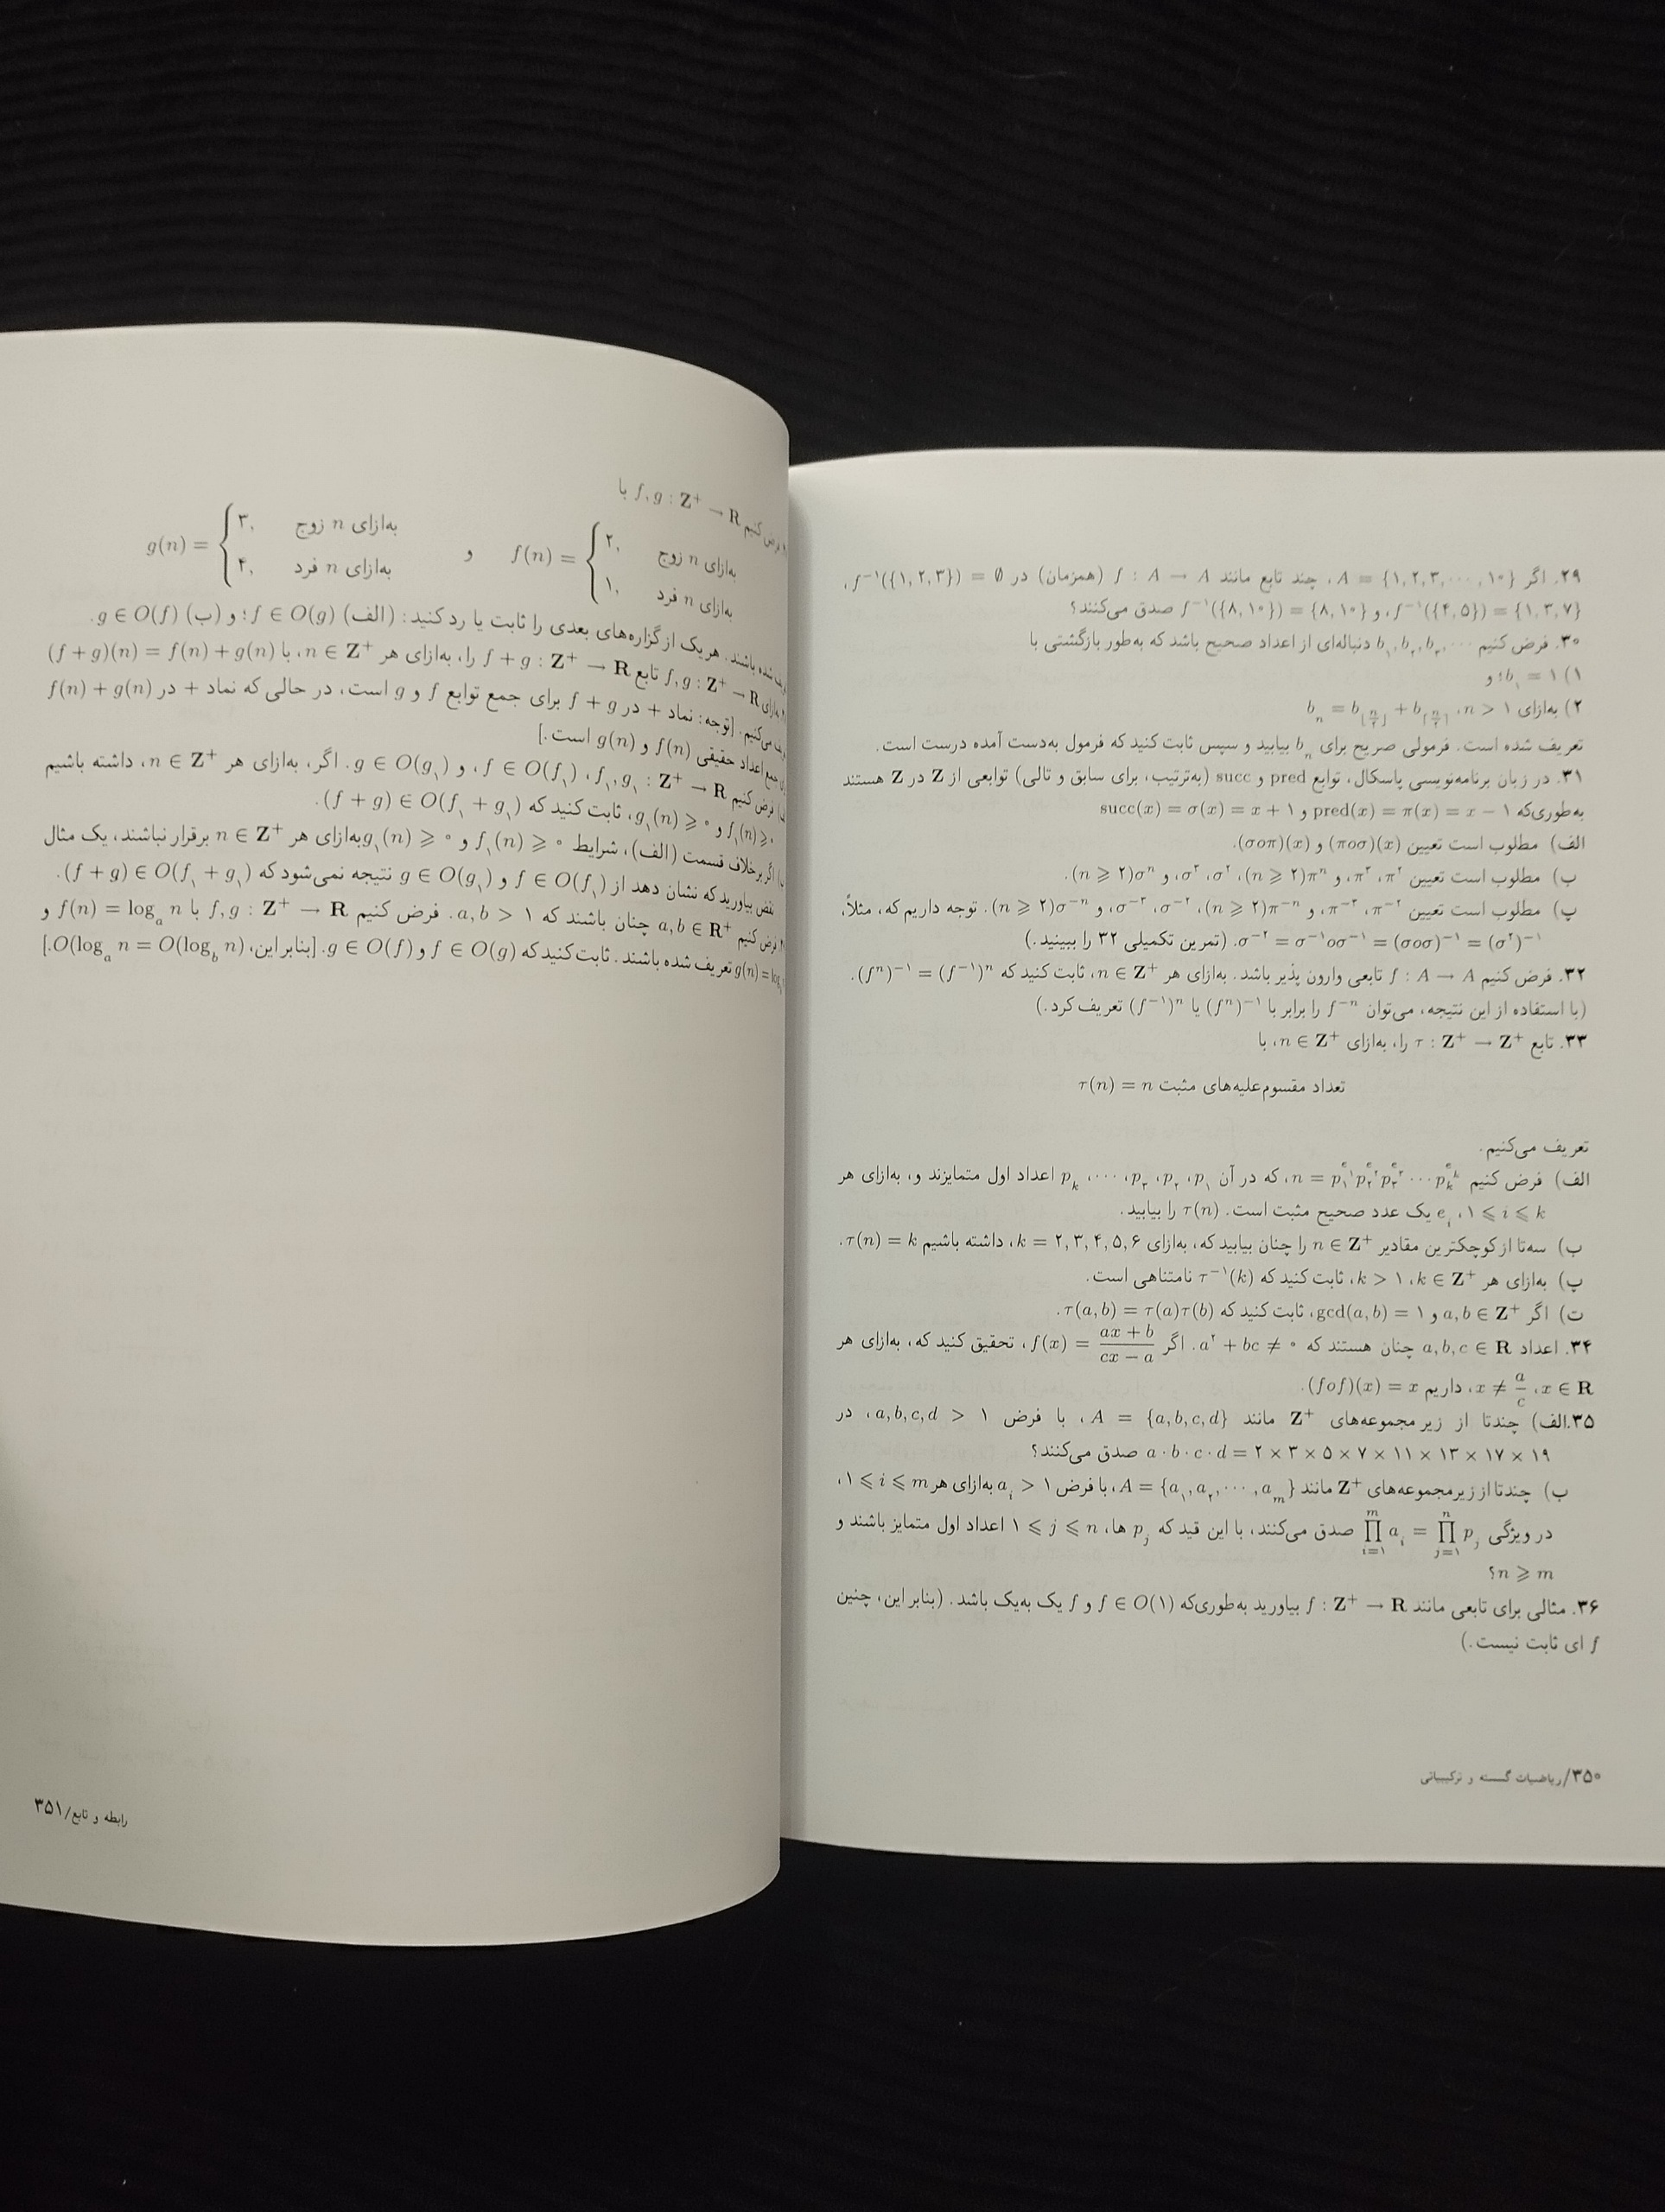 ۲۹. اگر A = {۱,۲,۳,⋯,۱۰}، چند تابع مانند f : A → A (همزمان) در f⁻¹({۱,۲,۳}) = ∅،
f⁻¹({۴,۵}) = {۱,۳,۷}، و f⁻¹({۸,۱۰}) = {۸,۱۰} صدق می‌کنند؟
۳۰. فرض کنیم b₁, b₂, b₃, ⋯ دنباله‌ای از اعداد صحیح باشد که به‌طور بازگشتی با
۱) b₁ = ۱؛ و
۲) به‌ازای n > ۱، bₙ = b⌊n/۲⌋ + b⌈n/۲⌉
تعریف شده است. فرمولی صریح برای bₙ بیابید و سپس ثابت کنید که فرمول به‌دست آمده درست است.
۳۱. در زبان برنامه‌نویسی پاسکال، توابع pred و succ (به‌ترتیب، برای سابق و تالی) توابعی از Z در Z هستند
به‌طوری‌که pred(x) = π(x) = x − ۱ و succ(x) = σ(x) = x + ۱
الف) مطلوب است تعیین (πoσ)(x) و (σoπ)(x).
ب) مطلوب است تعیین π²، π³، و πⁿ(n ⩾ ۲)، σ²، σ³، و σⁿ(n ⩾ ۲).
پ) مطلوب است تعیین π⁻²، π⁻³، و π⁻ⁿ(n ⩾ ۲)، σ⁻²، σ⁻³، و σ⁻ⁿ(n ⩾ ۲). توجه داریم که، مثلاً،
σ⁻² = σ⁻¹oσ⁻¹ = (σoσ)⁻¹ = (σ²)⁻¹. (تمرین تکمیلی ۳۲ را ببینید.)
۳۲. فرض کنیم f : A → A تابعی وارون پذیر باشد. به‌ازای هر n ∈ Z⁺، ثابت کنید که (fⁿ)⁻¹ = (f⁻¹)ⁿ.
(با استفاده از این نتیجه، می‌توان f⁻ⁿ را برابر با (fⁿ)⁻¹ یا (f⁻¹)ⁿ تعریف کرد.)
۳۳. تابع τ : Z⁺ → Z⁺ را، به‌ازای n ∈ Z⁺، با
τ(n) = n تعداد مقسوم‌علیه‌های مثبت
تعریف می‌کنیم.
الف) فرض کنیم n = p₁^e₁ p₂^e₂ p₃^e₃ ⋯ pₖ^eₖ، که در آن p₁، p₂، p₃، ⋯، pₖ اعداد اول متمایزند و، به‌ازای هر
۱ ⩽ i ⩽ k، eᵢ یک عدد صحیح مثبت است. τ(n) را بیابید.
ب) سه‌تا از کوچکترین مقادیر n ∈ Z⁺ را چنان بیابید که، به‌ازای k = ۲,۳,۴,۵,۶، داشته باشیم τ(n) = k.
پ) به‌ازای هر k ∈ Z⁺، k > ۱، ثابت کنید که τ⁻¹(k) نامتناهی است.
ت) اگر a,b ∈ Z⁺ و gcd(a,b) = ۱، ثابت کنید که τ(a,b) = τ(a)τ(b).
۳۴. اعداد a,b,c ∈ R چنان هستند که a² + bc ≠ ۰. اگر f(x) = (ax + b)/(cx − a)، تحقیق کنید که، به‌ازای هر
x ∈ R، x ≠ a/c، داریم (fof)(x) = x.
۳۵.الف) چندتا از زیرمجموعه‌های Z⁺ مانند A = {a,b,c,d}، با فرض a,b,c,d > ۱، در
a · b · c · d = ۲ × ۳ × ۵ × ۷ × ۱۱ × ۱۳ × ۱۷ × ۱۹ صدق می‌کنند؟
ب) چندتا از زیرمجموعه‌های Z⁺ مانند A = {a₁,a₂,⋯,aₘ}، با فرض aᵢ > ۱ به‌ازای هر ۱ ⩽ i ⩽ m،
در ویژگی ∏ᵢ₌₁ᵐ aᵢ = ∏ⱼ₌₁ⁿ pⱼ صدق می‌کنند، با این قید که pⱼ ها، ۱ ⩽ j ⩽ n اعداد اول متمایز باشند و
n ⩾ m؟
۳۶. مثالی برای تابعی مانند f : Z⁺ → R بیاورید به‌طوری‌که f ∈ O(۱) و f یک به‌یک باشد. (بنابراین، چنین
f ای ثابت نیست.)
۳۵۰/ریاضیات گسسته و ترکیبیاتی
فرض کنیم f,g : Z⁺ → R با
f(n) = { ۲, به‌ازای n زوج و g(n) = { ۳, به‌ازای n زوج
۱, به‌ازای n فرد ۴, به‌ازای n فرد
شده باشند. هریک از گزاره‌های بعدی را ثابت یا رد کنید: (الف) f ∈ O(g)؛ و (ب) g ∈ O(f).
به‌ازای f,g : Z⁺ → R تابع f + g : Z⁺ → R را، به‌ازای هر n ∈ Z⁺، با (f + g)(n) = f(n) + g(n)
می‌کنیم. [توجه: نماد + در f + g برای جمع توابع f و g است، در حالی که نماد + در f(n) + g(n)
جمع اعداد حقیقی f(n) و g(n) است.]
فرض کنیم f₁,g₁ : Z⁺ → R، f ∈ O(f₁)، و g ∈ O(g₁). اگر، به‌ازای هر n ∈ Z⁺، داشته باشیم
f₁(n) ⩾ ۰ و g₁(n) ⩾ ۰، ثابت کنید که (f + g) ∈ O(f₁ + g₁).
اگر برخلاف قسمت (الف)، شرایط f₁(n) ⩾ ۰ و g₁(n) ⩾ ۰ به‌ازای هر n ∈ Z⁺ برقرار نباشند، یک مثال
نقض بیاورید که نشان دهد از f ∈ O(f₁) و g ∈ O(g₁) نتیجه نمی‌شود که (f + g) ∈ O(f₁ + g₁).
فرض کنیم a,b ∈ R⁺ چنان باشند که a,b > ۱. فرض کنیم f,g : Z⁺ → R با f(n) = logₐ n و
g(n) = تعریف شده باشند. ثابت کنید که f ∈ O(g) و g ∈ O(f). [بنابراین، O(logₐ n = O(log_b n).]
رابطه و تابع/۳۵۱